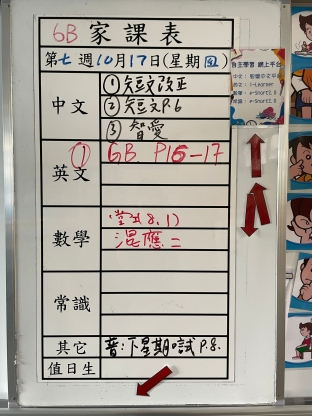 6B 家課表
第七週10月17日(星期四)
中文 ①短文改正
②短文P.6
③智愛
英文 ① GB P16-17
數學 (堂28.1)
混應二
常識
其它 普:下星期口試 P.8.
值日生
自主學習 網上平台